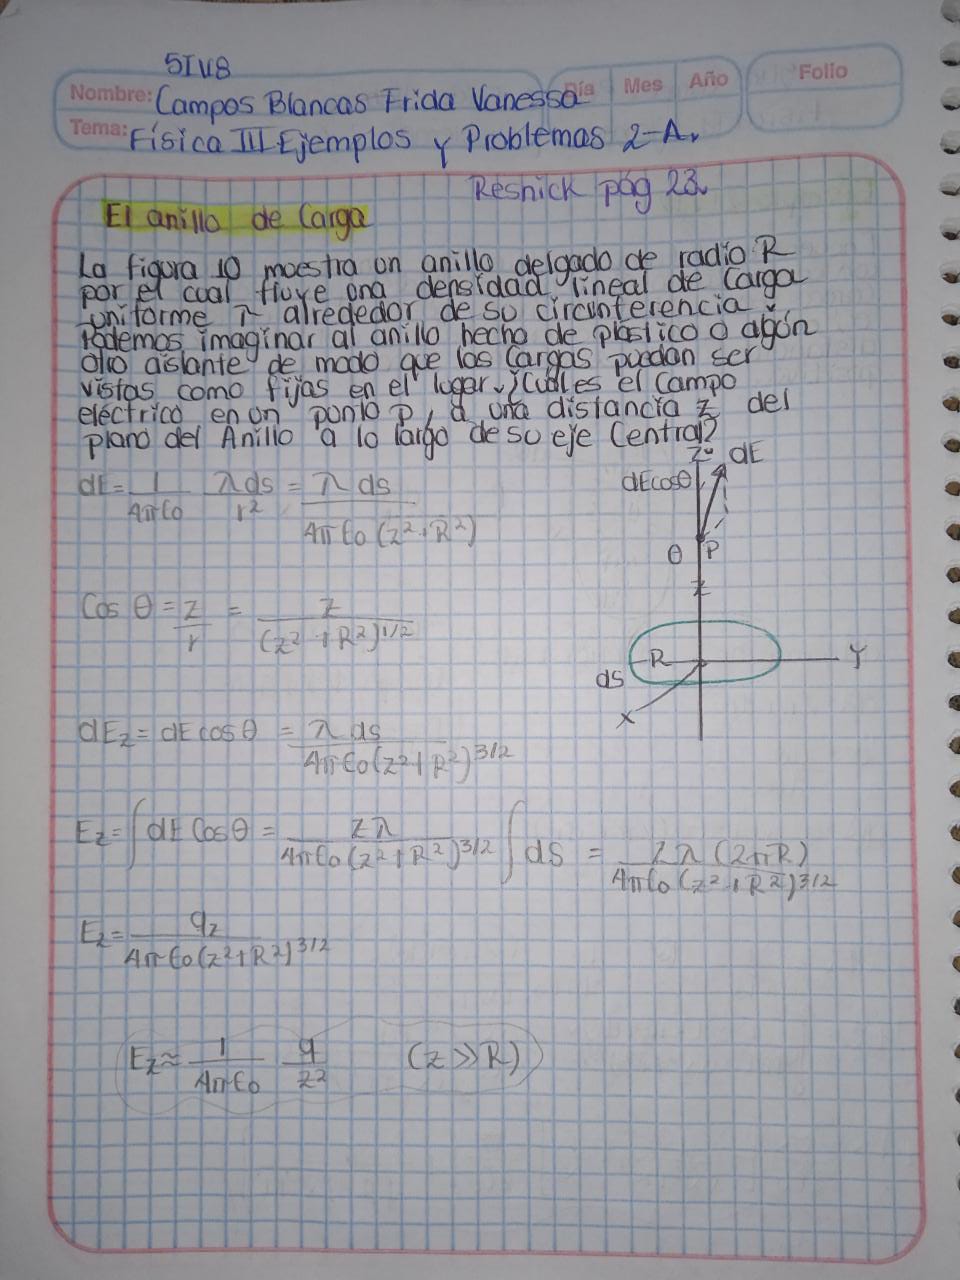 5IV8
Nombre: Campos Blancas Frida Vanessa
Día Mes Año
Folio
Tema: Física III Ejemplos y Problemas 2-A.
Resnick pág 23.
El anillo de Carga
La figura 10 muestra un anillo delgado de radio R
por el cual fluye una densidad lineal de Carga
uniforme λ alrededor de su circunferencia.
Podemos imaginar al anillo hecho de plástico o algún
otro aislante de modo que las Cargas puedan ser
vistas como fijas en el lugar. ¿Cuál es el Campo
eléctrico en un punto P, a una distancia z del
plano del Anillo a lo largo de su eje Central?
dE = 1/4πϵ0 λds/r² = λ ds/4πϵ0(z²+R²)
Cos θ = z/r = z/(z²+R²)1/2
dEz = dE cos θ = λ ds/4πϵ0(z²+R²)3/2
Ez = ∫dE Cos θ = zλ/4πϵ0(z²+R²)3/2 ∫ds = zλ(2πR)/4πϵ0(z²+R²)3/2
Ez = qz/4πϵ0(z²+R²)3/2
Ez ≈ 1/4πϵ0 q/z² (z>>R)
z dE
dE cos θ
θ P
z
R Y
ds
X